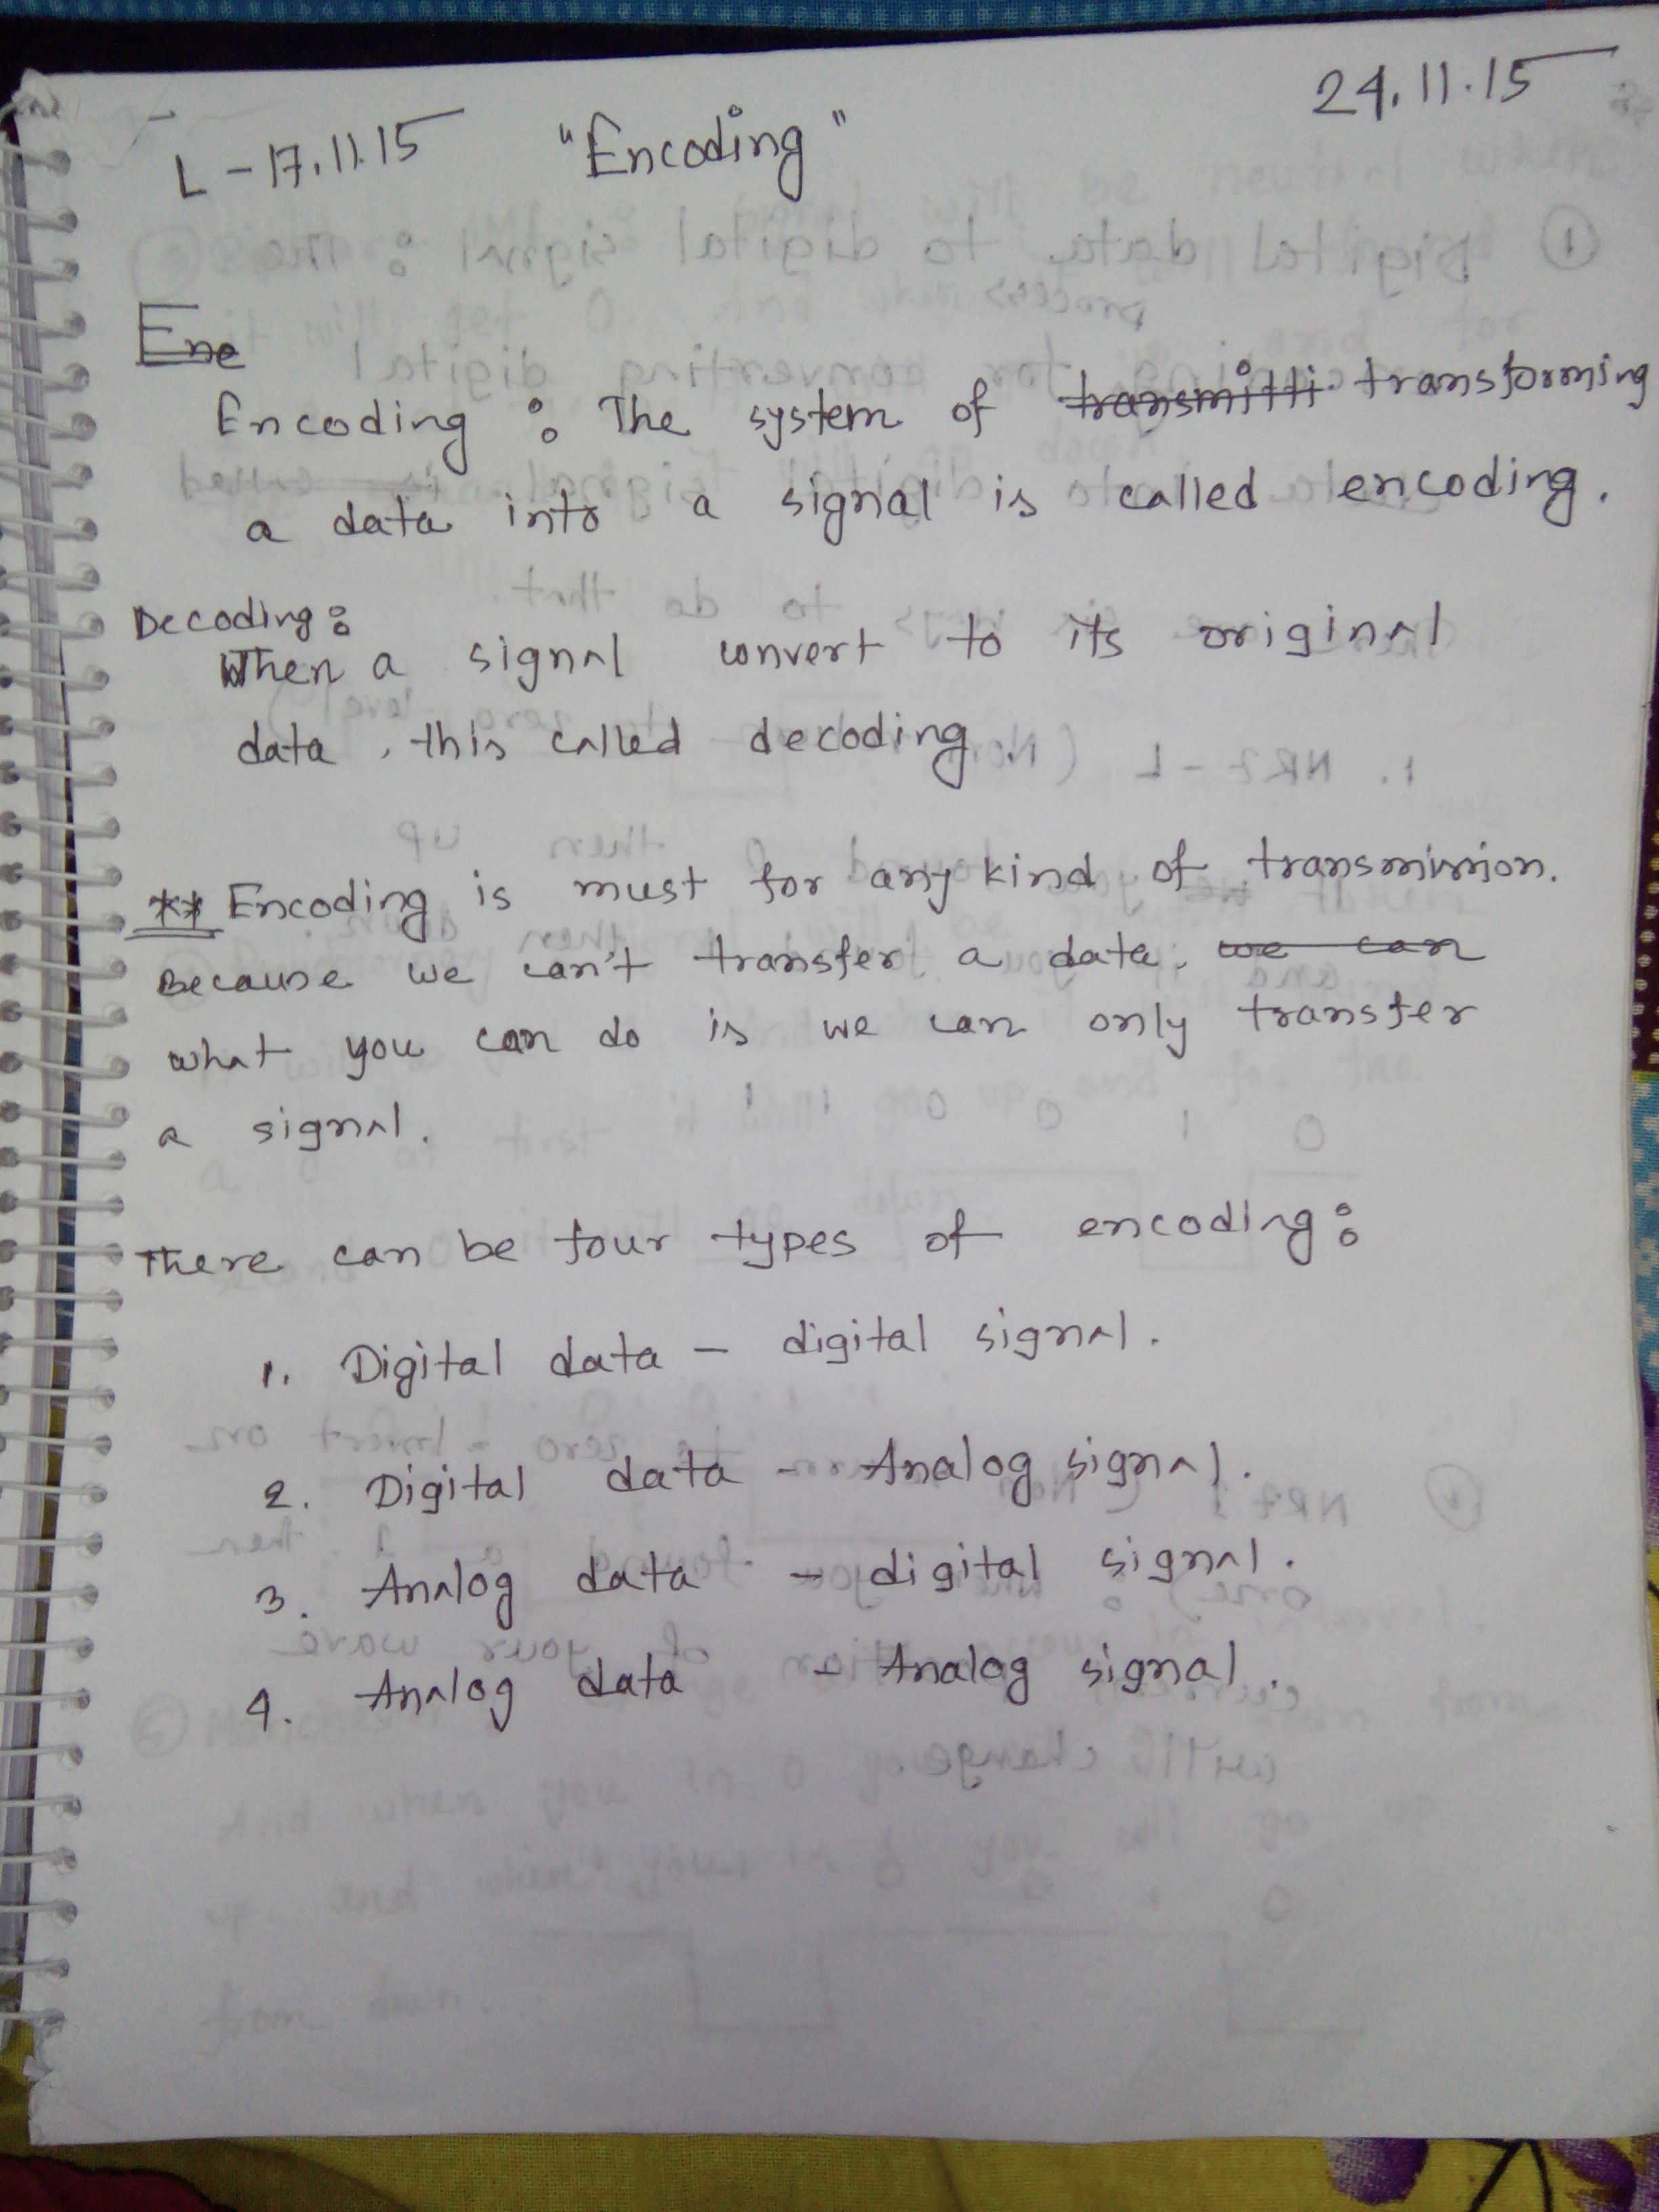 24.11.15
L-17.11.15 "Encoding"
Ene
Encoding : The system of transmitti transforming
a data into a signal is called encoding.
Decoding :
When a signal convert to its original
data, this called decoding.
** Encoding is must for any kind of transmission.
Because we can't transfer a data. we can
what you can do is we can only transfer
a signal.
There can be four types of encoding :
1. Digital data - digital signal.
2. Digital data - Analog signal.
3. Analog data - digital signal.
4. Analog data - Analog signal.